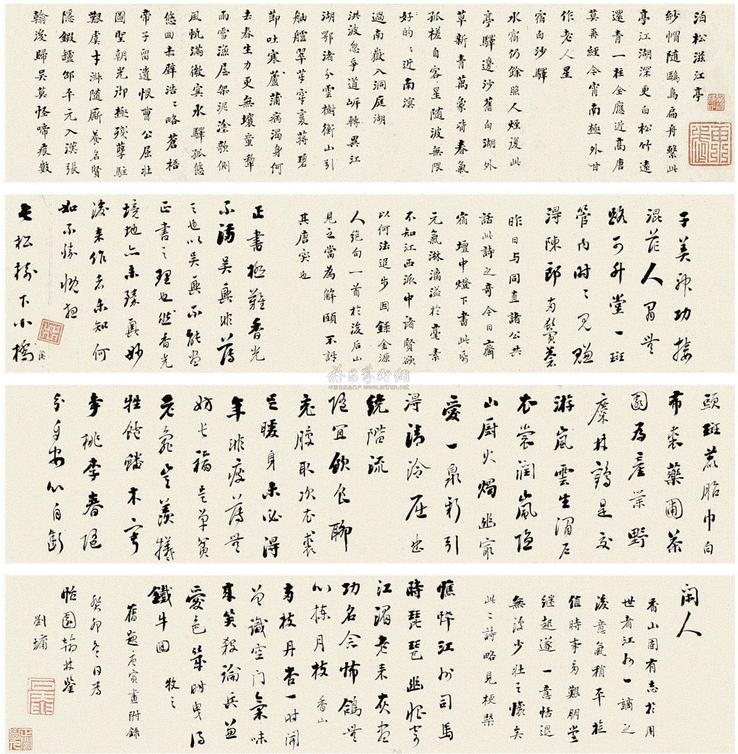 泊松滋江亭
紗帽隨鷗鳥扁舟繫此
亭江湖深更白松竹遠
還青一柱全應近高唐
莫再經今宵南極外甘
作老人星
宿白沙驛
水宿仍餘照人煙復此
亭驛邊沙舊白湖外
草新青萬象皆春氣
孤槎自客星隨波無限
好的的近南溟
過南嶽入洞庭湖
洪波忽爭道岸轉異江
湖鄂渚分雲樹衡山引
舳艫翠牙穿裛蔣碧
節吐寒蘆蒲病渴身何
去春生力更無壤童犁
雨雪漁屋架泥塗欹側
風帆滿微冥水驛孤悠
悠回赤壁浩浩略蒼梧
帝子留遺恨曹公屈壯
圖聖朝光御極殘孽駐
艱虞才淑隨廝養名賢
隱鍛爐邵平元入漢張
翰後歸吳莫怪啼痕數
子美神功接
混茫人間無
路可升堂一斑
管內時時見賺
得陳郎兩鬢蒼
昨日與同直諸公共
話此詩之奇今日齋
宿壇中燈下書此
元氣淋漓溢於毫素
不知江西派中諸賢欲
以何法退步因錄金源
人絕句一首於後后山
見之當為解頤不訴
其唐突也
正書極難香光
不滿吳興非薄
之也以吳興不能當
正書之理也然香光
境地亦未臻其妙
後來作者未知何
如不勝慨想
長松樹下小橋
溪
頭斑鹿胎巾白
布裘藥圃茶
園為產業野
麋林鶴是交
游嵐雲生澗戶
衣裳潤嵐隱
山廚火燭幽最
愛一泉新引
得清泠屈曲
繞階流
隨宜飲食聊
充腹取次衣裘
亦暖身未必得
年非瘦薄無
妨長福是單貧
老龜豈羨犧
牲飽蟠木寧
爭桃李春隨
分自安心自斷
閑人
香山固有志於用
世者江州一謫之
後意氣稍平
值時事多艱朋黨
繼起遂一意恬退
無復少壯之懷矣
此二詩略見梗槩
憔悴江州司馬
時琵琶幽恨寄
江湄老来灰盡
功名念怖鴿無
心揀月枝 香山
兩枝丹杏一時開
曾識空門氣味
來笑殺論兵兼
愛色箏聲曳得
鐵牛回 牧之
舊題唐寅畫附錄
癸卯冬日為
怡園翰林鑒
劉墉